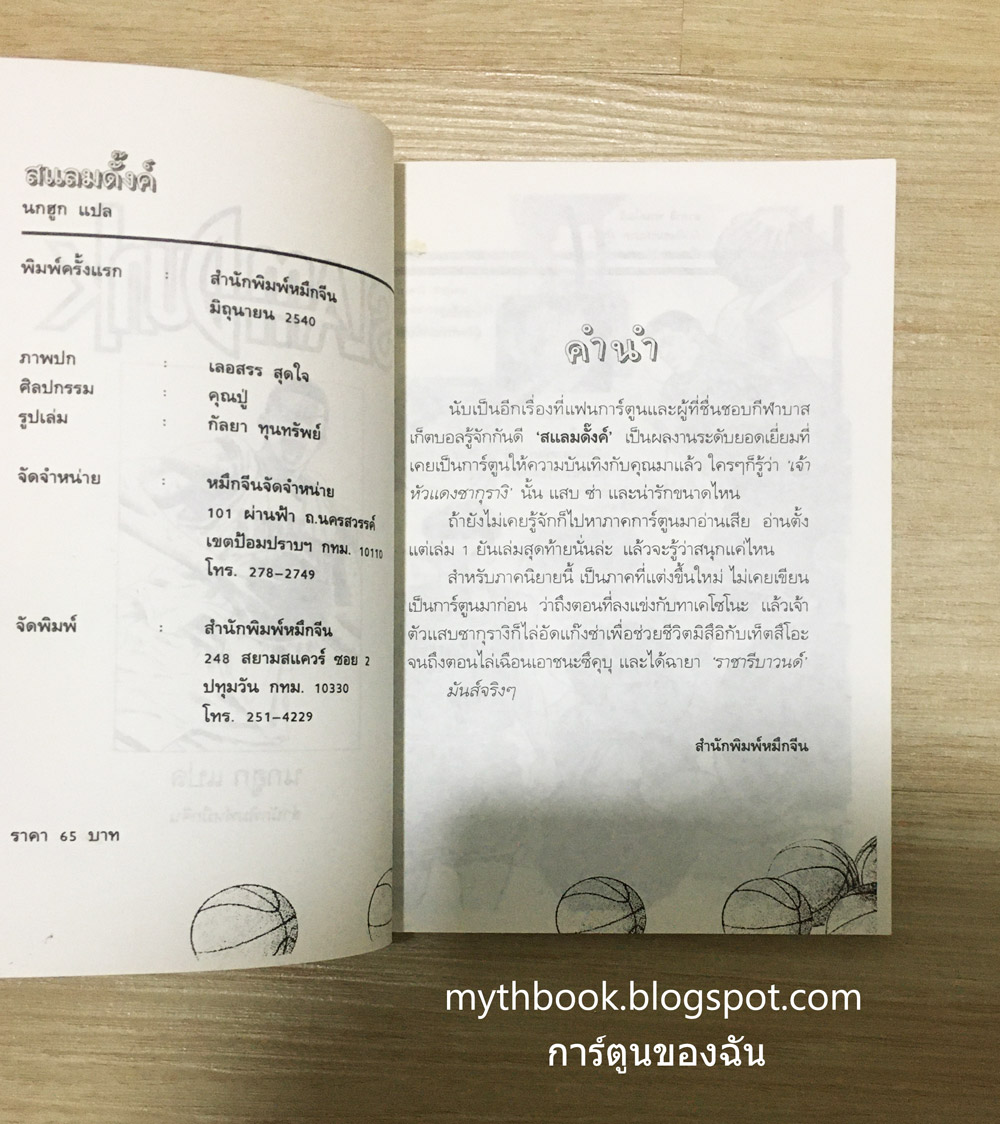 สแลมดั๊งค์
นกฮูก แปล
พิมพ์ครั้งแรก : สำนักพิมพ์หมึกจีน
มิถุนายน 2540
ภาพปก : เลอสรร สุดใจ
ศิลปกรรม : คุณปู่
รูปเล่ม : กัลยา ทุนทรัพย์
จัดจำหน่าย : หมึกจีนจัดจำหน่าย
101 ผ่านฟ้า ถ.นครสวรรค์
เขตป้อมปราบฯ กทม. 10110
โทร. 278-2749
จัดพิมพ์ : สำนักพิมพ์หมึกจีน
248 สยามสแควร์ ซอย 2
ปทุมวัน กทม. 10330
โทร. 251-4229
ราคา 65 บาท
คำนำ
นับเป็นอีกเรื่องที่แฟนการ์ตูนและผู้ที่ชื่นชอบกีฬาบาส
เก็ตบอลรู้จักกันดี 'สแลมดั๊งค์' เป็นผลงานระดับยอดเยี่ยมที่
เคยเป็นการ์ตูนให้ความบันเทิงกับคุณมาแล้ว ใครๆก็รู้ว่า 'เจ้า
หัวแดงซากุรางิ' นั้น แสบ ซ่า และน่ารักขนาดไหน
ถ้ายังไม่เคยรู้จักก็ไปหาภาคการ์ตูนมาอ่านเสีย อ่านตั้ง
แต่เล่ม 1 ยันเล่มสุดท้ายนั่นล่ะ แล้วจะรู้ว่าสนุกแค่ไหน
สำหรับภาคนิยายนี้ เป็นภาคที่แต่งขึ้นใหม่ ไม่เคยเขียน
เป็นการ์ตูนมาก่อน ว่าถึงตอนที่ลงแข่งกับทาเคโซโนะ แล้วเจ้า
ตัวแสบซากุรางิก็ไล่อัดแก๊งซ่าเพื่อช่วยชีวิตมิสึอิกับเท็ตสึโอะ
จนถึงตอนไล่เฉือนเอาชนะซึคุบุ และได้ฉายา 'ราชารีบาวนด์'
มันส์จริงๆ
สำนักพิมพ์หมึกจีน
mythbook.blogspot.com
การ์ตูนของฉัน